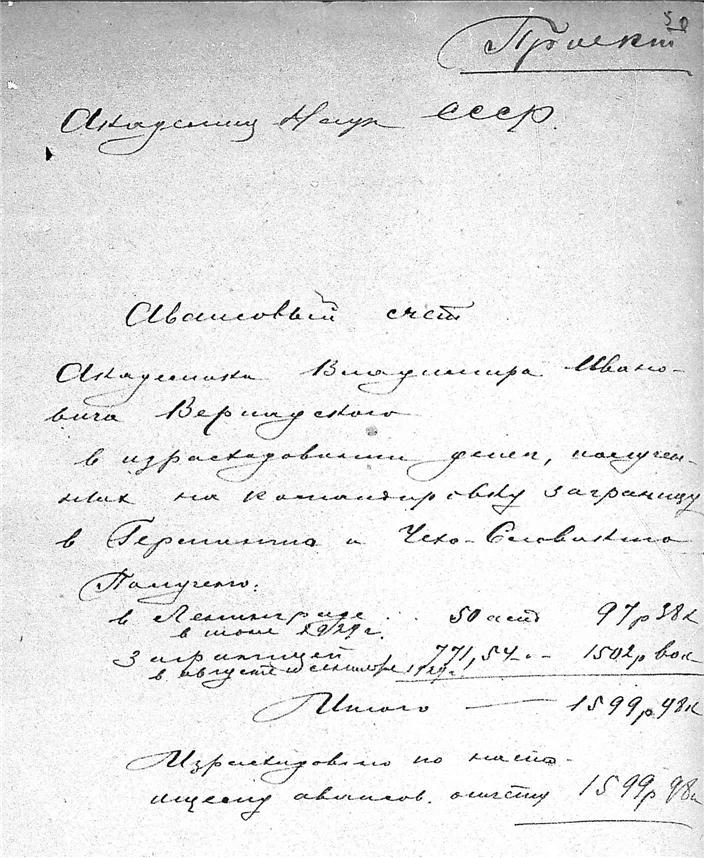 50
Проект
Академии Наук СССР.
Авансовый счет
Академика Владимира Ивано-
вича Вернадского
в израсходовании денег, получен-
ных на командировку заграницу
в Германию и Чехо-Словакию
Получено:
в Ленинграде . . 50 97р 38к
в июне 1929 г.
Заграницей 771,54 - " - 1502р 60к
в августе и сентябре 1929г.
Итого — 1599р 98к
Израсходовано по насто-
ящему авансов. отчету 1599р 98к